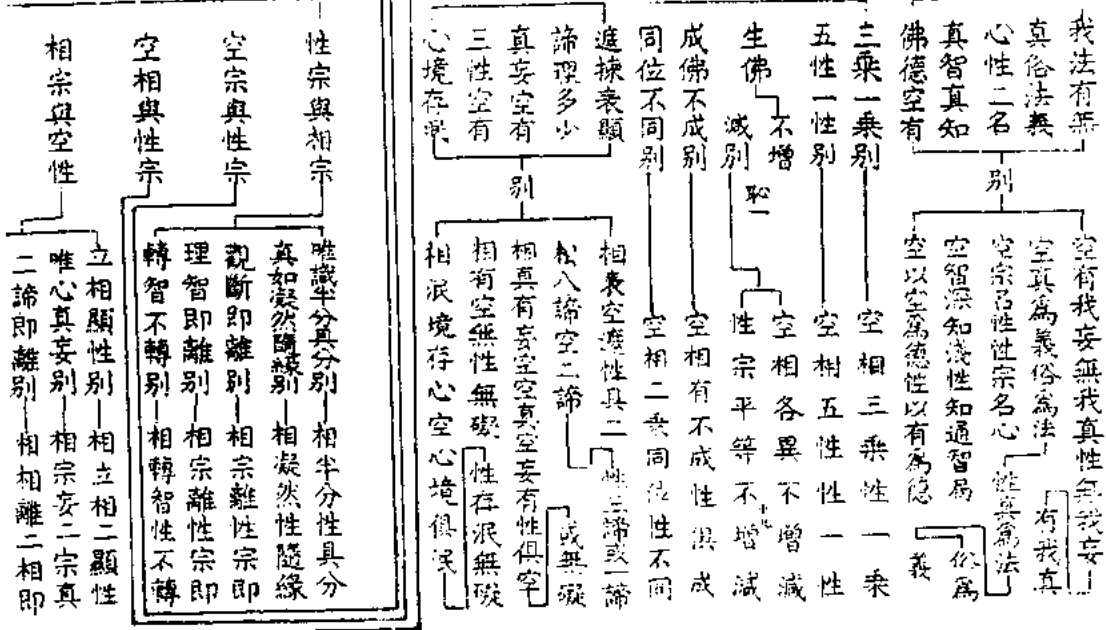 我法有無
真俗法義
心性二名
真智真知
佛德空有
別
空有我妄無我真性無我妄
有我真
空真為義俗為法
性真為法
俗為
義
空宗名性性宗名心
空智深知淺性知通智局
空以空為德性以有為德
三乘一乘別
空相三乘性一乘
五性一性別
空相五性性一性
生佛
不增
減別
恥一
空相各異不增減
性宗平等不增減
成佛不成別
空相有不成性俱成
同位不同別
空相二乘同位性不同
遮揀表顯
諦理多少
真妄空有
三性空有
心境存泯
別
相表空遮性具二
松八諦空二諦
性三諦或一諦
相真有妄空空真空妄有性俱空
或無礙
相有空無性無礙
相泯境存心空心境俱泯
性存泯無礙
性宗與相宗
空宗與性宗
空相與性宗
相宗與空性
唯識半分具分別
相半分性具分
真如凝然隨緣別
相凝然性隨緣
觀斷即離別
相宗離性宗即
理智即離別
相宗離性宗即
轉智不轉別
相轉智性不轉
立相顯性別
相立相二顯性
唯心真妄別
相宗妄二宗真
二諦即離別
相相離二相即